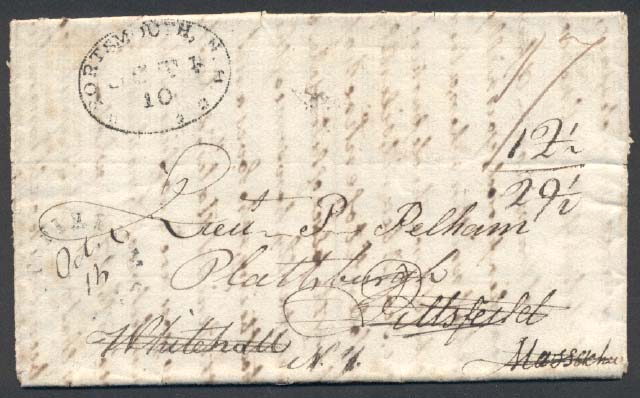 PORTSMOUTH, N.H
OCT
10
17
12½
29½
Oct.
Lieut P. Pelham
Plattsburgh
Pittsfield
Whitehall
N. Y.
Massachu